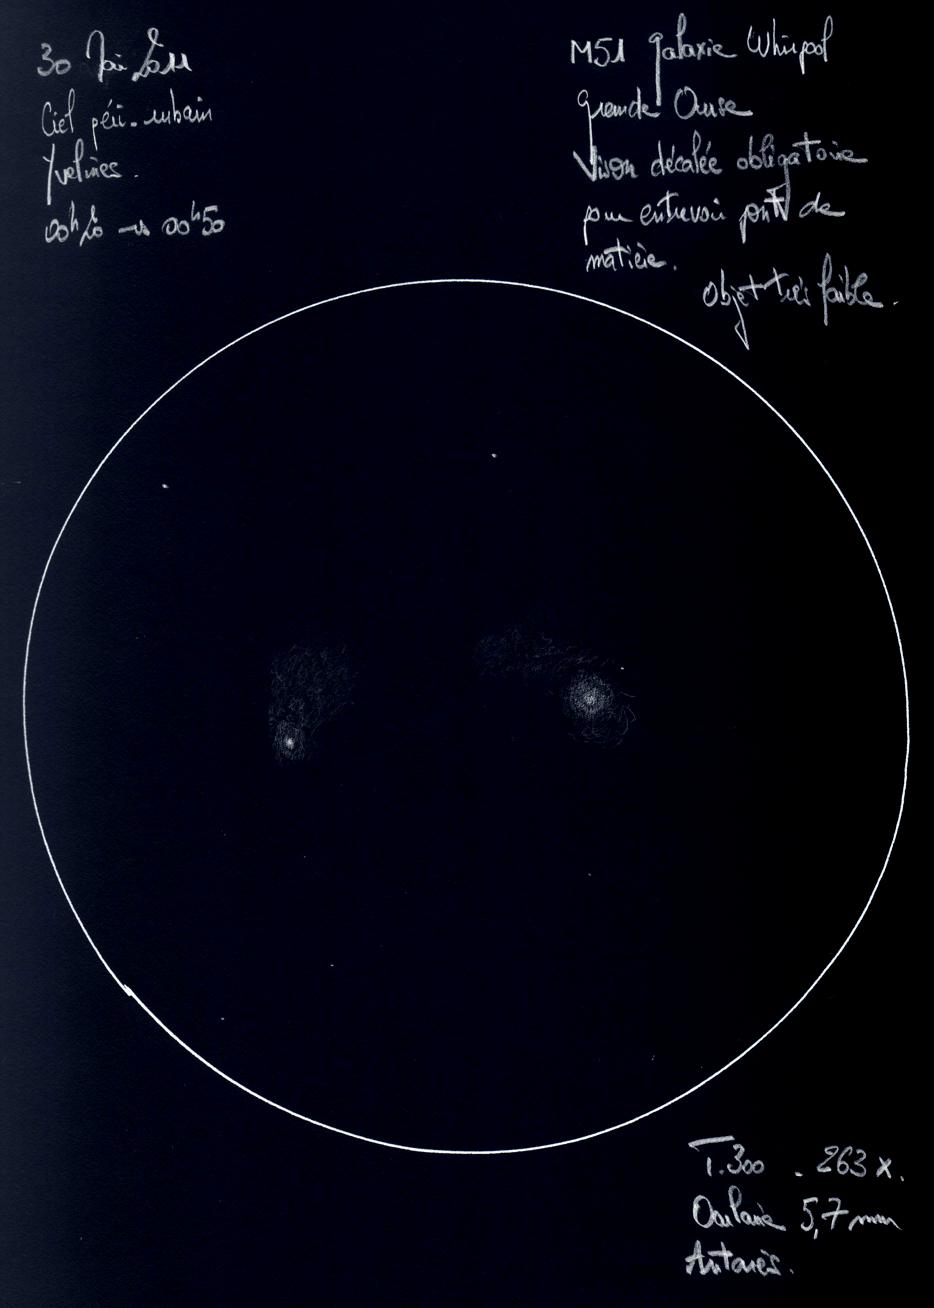 30 Mai 2011
Ciel péri-urbain
Yvelines.
00h20 → 00h50
M51 galaxie Whirpool
grande Ourse
Vison décalée obligatoire
pour entrevoir pont de
matière.
Objet très faible.
T.300 - 263 x.
Oculaire 5,7 mm
Antarès.